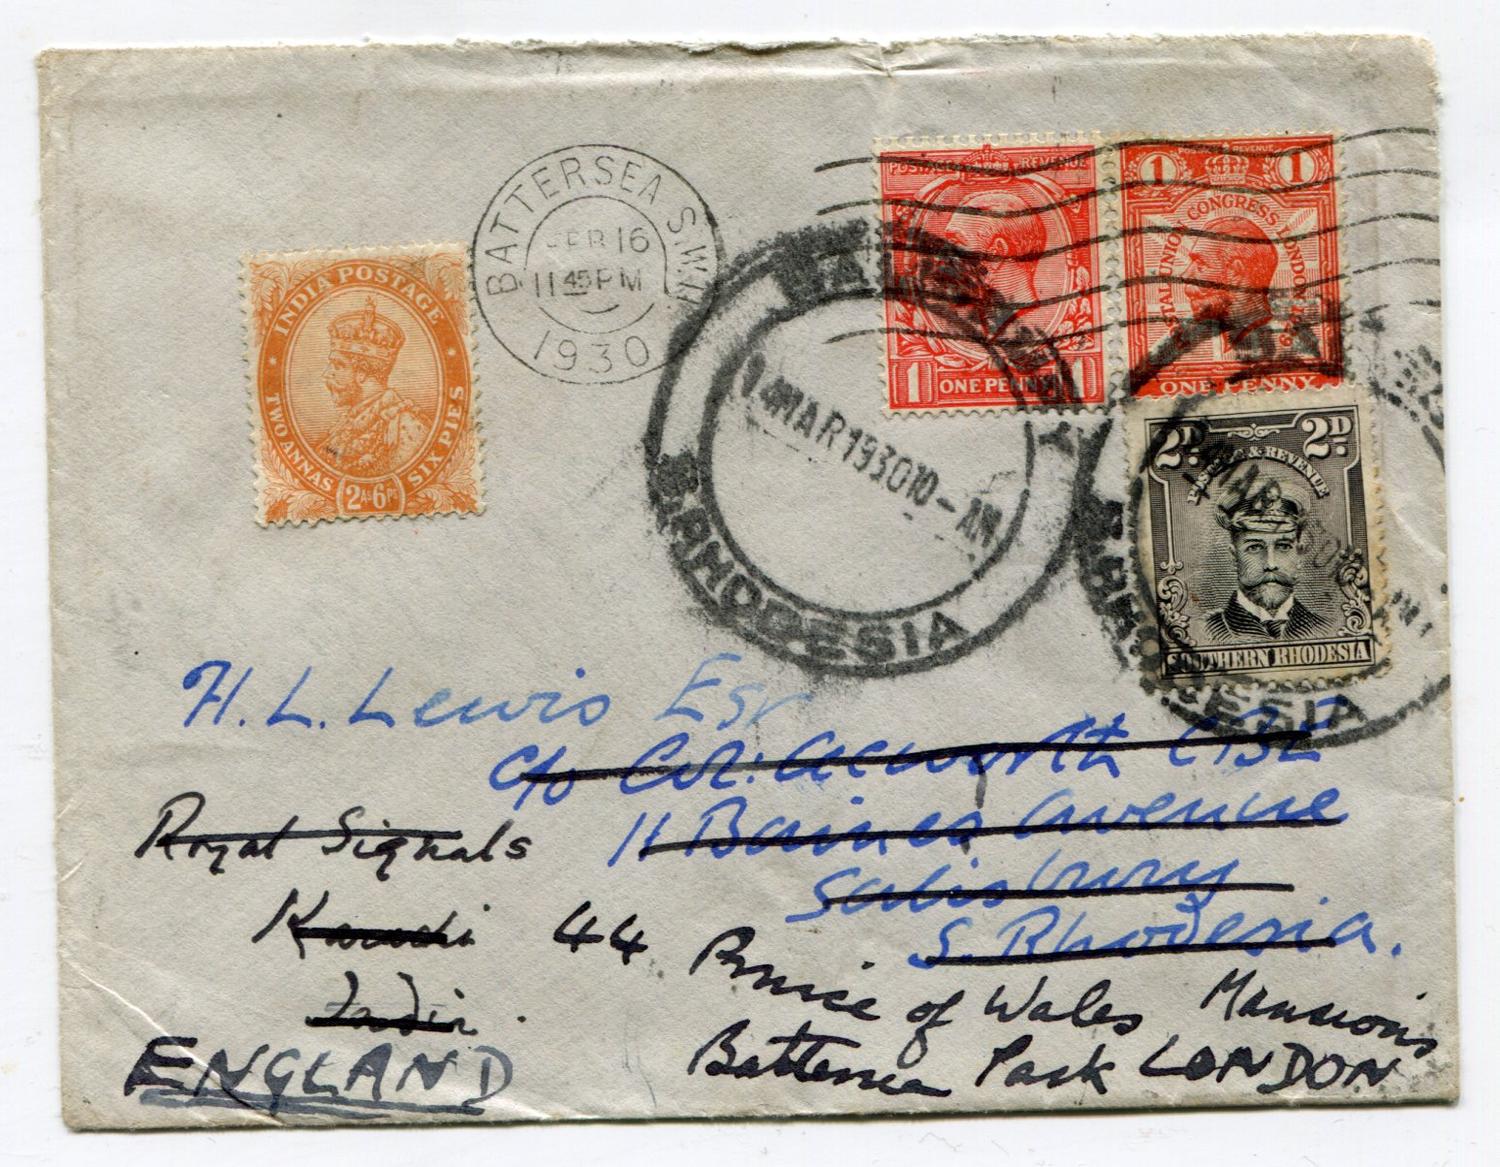 BATTERSEA S.W.11
FEB 16
11 45 PM
1930
INDIA POSTAGE
TWO ANNAS SIX PIES
2As 6Ps
POSTAGE REVENUE
1 ONE PENNY 1
1 POSTAGE REVENUE 1
POSTAL UNION CONGRESS LONDON 1929
ONE PENNY
14 MAR 1930 10 - AM
S. RHODESIA
2D 2D
POSTAGE & REVENUE
MAR
SOUTHERN RHODESIA
RHODESIA
H. L. Lewis Esq
c/o Col: Acworth CBE
11 Baines Avenue
Salisbury
S. Rhodesia.
Royal Signals
Karachi
India.
44 Prince of Wales Mansions
Battersea Park LONDON
ENGLAND